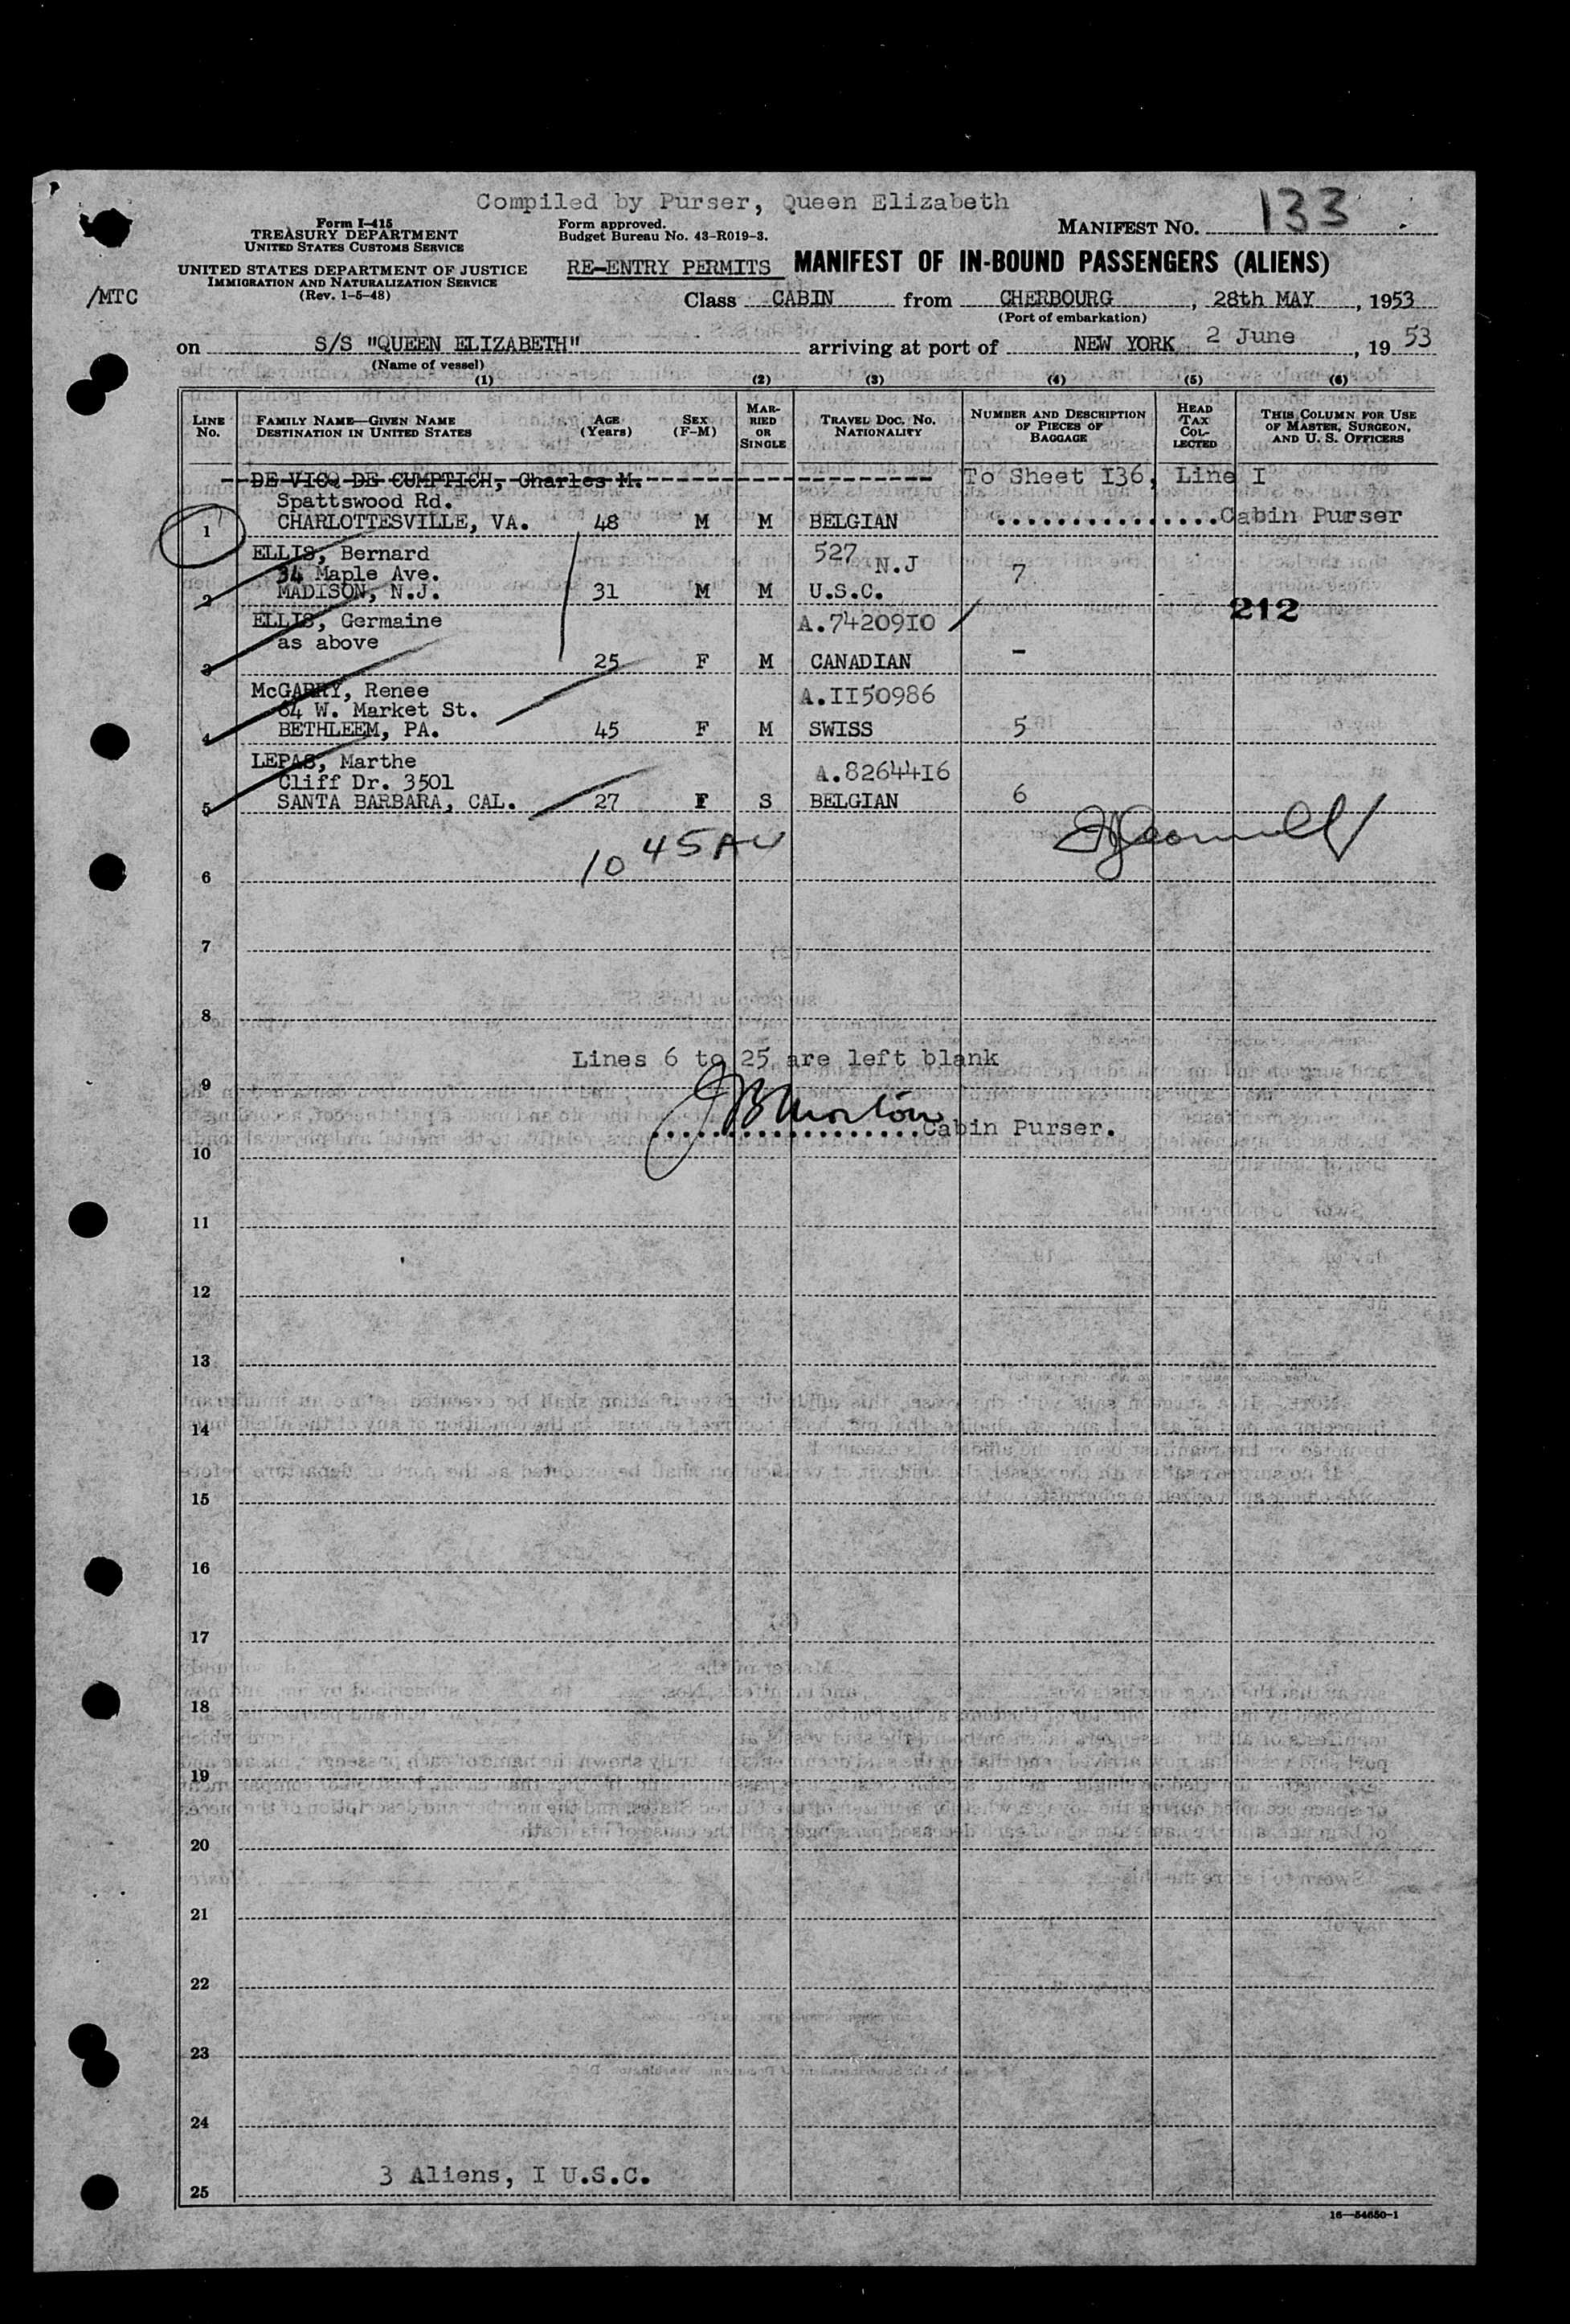 Compiled by Purser, Queen Elizabeth
Form I-415
TREASURY DEPARTMENT
UNITED STATES CUSTOMS SERVICE
Form approved.
Budget Bureau No. 43-R019-3.
MANIFEST NO. 133
UNITED STATES DEPARTMENT OF JUSTICE
IMMIGRATION AND NATURALIZATION SERVICE
(Rev. 1-5-48)
RE-ENTRY PERMITS MANIFEST OF IN-BOUND PASSENGERS (ALIENS)
/MTC
Class CABIN from CHERBOURG, 28th MAY, 1953
(Port of embarkation)
on S/S "QUEEN ELIZABETH" arriving at port of NEW YORK 2 June, 19 53
(Name of vessel)
(1) (2) (3) (4) (5) (6)
LINE NO. FAMILY NAME—GIVEN NAME DESTINATION IN UNITED STATES AGE (Years) SEX (F-M) MARRIED OR SINGLE TRAVEL DOC. NO. NATIONALITY NUMBER AND DESCRIPTION OF PIECES OF BAGGAGE HEAD TAX COLLECTED THIS COLUMN FOR USE OF MASTER, SURGEON, AND U. S. OFFICERS
DE VICQ DE CUMPTICH, Charles M. To Sheet I36, Line I
Spattswood Rd.
1 CHARLOTTESVILLE, VA. 48 M M BELGIAN ...............Cabin Purser
ELLIS, Bernard 527 N.J
34 Maple Ave. 7
2 MADISON, N.J. 31 M M U.S.C.
212
ELLIS, Germaine A.7420910
as above
3 25 F M CANADIAN -
McGARRY, Renee A.II50986
64 W. Market St.
4 BETHLEEM, PA. 45 F M SWISS 5
LEPAS, Marthe A.82644I6
Cliff Dr. 3501
5 SANTA BARBARA, CAL. 27 F S BELGIAN 6
10 45 A
6
7
8
Lines 6 to 25 are left blank
9
JB Morton
..................Cabin Purser.
10
11
12
13
14
15
16
17
18
19
20
21
22
23
24
3 Aliens, I U.S.C.
25
16—54650-1